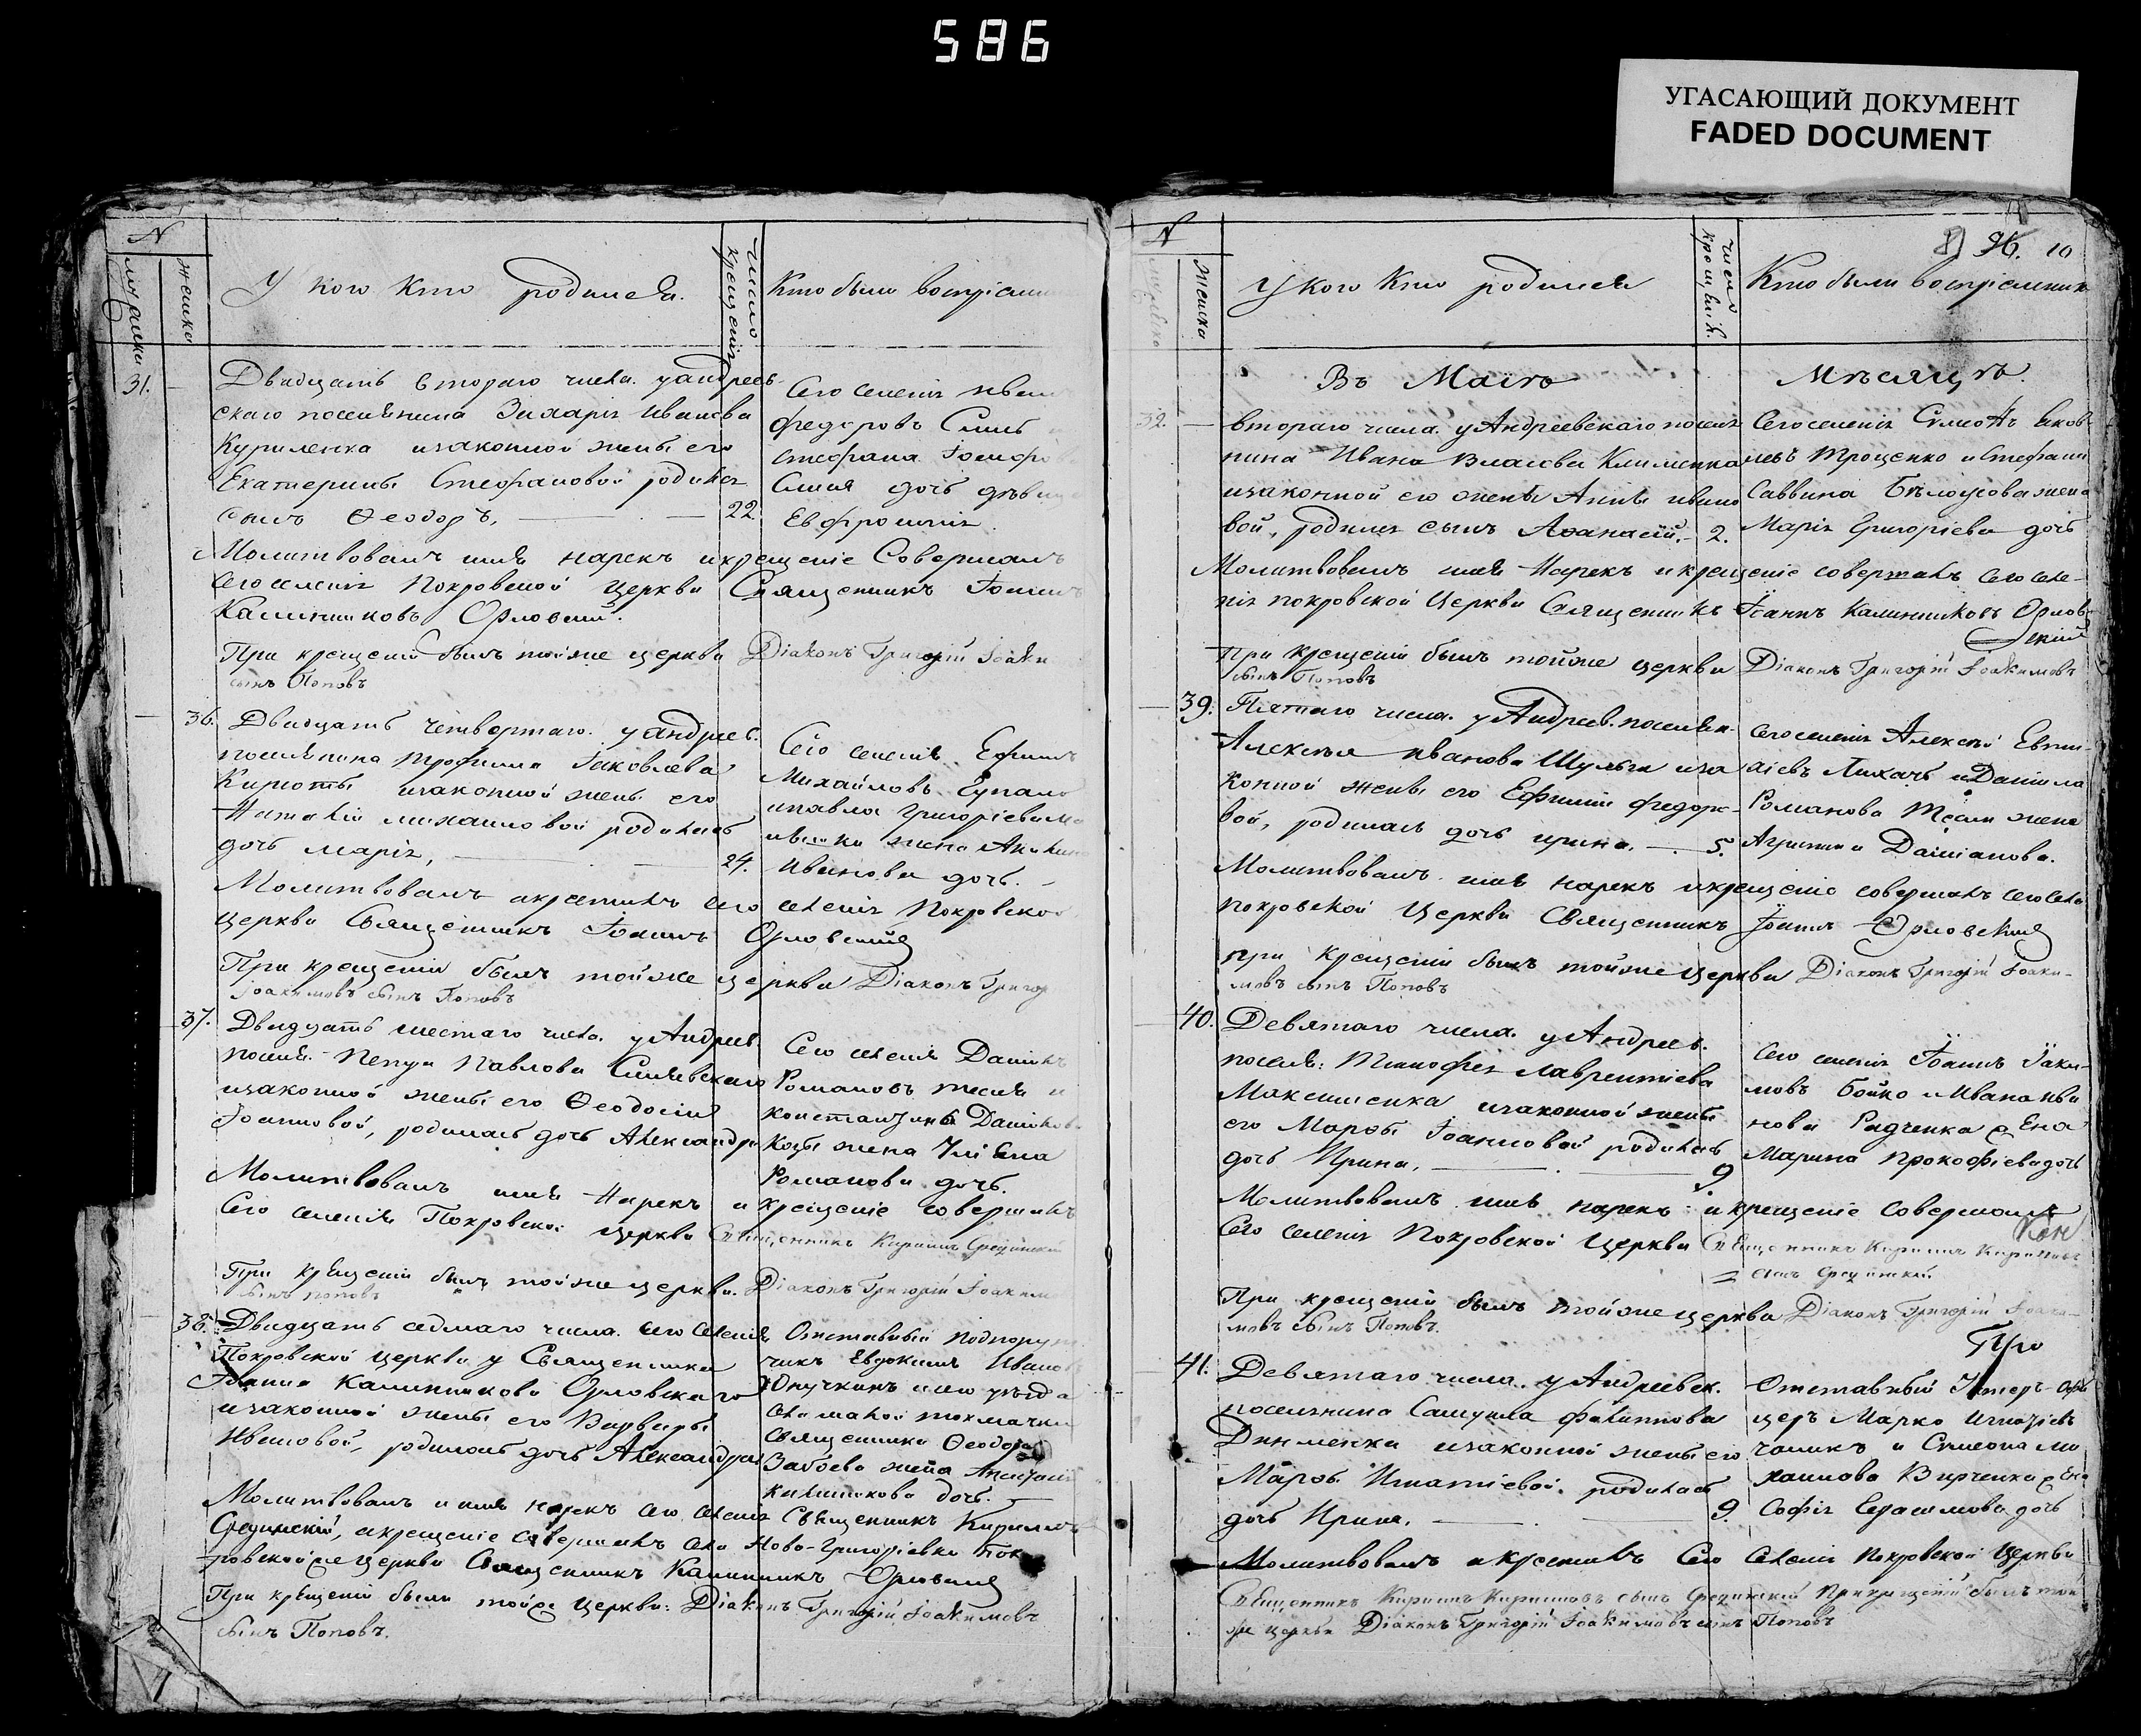 586
УГАСАЮЩИЙ ДОКУМЕНТ
FADED DOCUMENT
N
мужеска
женска
У кого кто родился.
число крещенія
Кто были воспріемни
31.
Двадцать втораго числа. у андреев-
скаго поселянина Захарія Иванова
Куриленка и законной жены его
Екатерины Стефановой родился
сынъ Ѳеодоръ. 22.
Сего селенія Иван
Федоровъ
стефана Іосифо
дочь девица
Евфросинія.
Молитвовалъ имя нарекъ и крещеніе Совершалъ
сего селенія Покровской церкви Священникъ Іоаннъ
Калинниковъ Орловский.
При крещеніи былъ тойже церкви Діаконъ Григорій Іоаки
сынъ Поповъ
36.
Двадцать четвертаго. у андреев.
поселянина Трофима Іаковлева
Кирioты и законной жены его
Наталіи михаиловой родилась
дочь марія, 24.
Сего селенія Ефимъ
Михайловъ
и павла Григоріева
жена Акилина
Иванова дочь.
Молитвовалъ и крестилъ сего селенія Покровской
церкви Священникъ Іоаннъ Орловский
При крещеніи былъ тойже церкви Діаконъ Григор
Іоакимовъ сынъ Поповъ
37.
Двадцать шестаго числа. у Андреев.
поселя. Петра Павлова
и законной жены его Ѳеодосіи
Іоанновой, родилась дочь Александра
Сего селенія Даніилъ
Романовъ тесля и
константина Данилов
жена Уліяна
Романова дочь.
Молитвовалъ имя Нарекъ и крещеніе совершилъ
Сего селенія Покровской церкви Священникъ Кириллъ Срединский
При крещеніи былъ тойже церкви. Діаконъ Григорій Іоакимо
сынъ поповъ
38.
Двадцать седмаго числа. Сего селенія
Покровской церкви у Священника
Іоанна Калинникова Орловскаго
и законной жены его Варвары
Ивановой, родилась дочь Александра
Отставный подпору
чикъ Евдокимъ Ивано
уезда
токмачки
священника Ѳеодора
жена Анастасія
Калиникова дочь.
Молитвовалъ и имя нарекъ сего селенія Священникъ Кириллъ
Срединскій, а крещеніе совершилъ села Ново-Григоріевки Пок
ровской церкви Священникъ Калинникъ Орловский
При крещеніи были тойже церкви: Діаконъ Григорій Іоакимовъ
сынъ Поповъ.
N
мужеска
женска
У кого кто родился
число крещенія.
Кто были воспріемник
96. 10
Въ Маіе Месяце.
32.
втораго числа. у Андреевскаго поселя
нина Ивана Власова Клименка
и законной его жены Анны ивано
вой, родился сынъ Аѳанасій. 2.
Сего селенія Сѵмеонъ Іаков
левъ Троценко и Стефана
Саввина Белоусова жена
Марія Григоріева дочь
Молитвовалъ имя Нарекъ и крещеніе совершалъ сего селе-
нія покровской Церкви Священникъ Іоаннъ Калинниковъ Орлов
ский
При крещеніи былъ тойже церкви Діаконъ Григорій Іоакимовъ
сынъ Поповъ
39.
Пятаго числа. у Андреев. поселян.
Алексея Иванова Шульги и за
конной жены его Ефиміи федоро-
вой, родилась дочь ирина. 5.
Сего селенія Алексей Евти-
хіевъ Лихачь и Даніила
Романова Тесли жена
Агрипина Даміанова.
Молитвовалъ имя нарекъ и крещеніе совершилъ сего селе
покровской Церкви Священникъ Іоаннъ Орловский
при Крещеніи былъ тойже церкви Діаконъ Григорій Іоаки-
мовъ сынъ Поповъ
40.
Девятаго числа. у Андреев.
поселя: Тимофея лаврентіева
Максименка и законной жены
его Марѳы Іоанновой родилась
дочь Ирина. 9.
Сего селенія Іоаннъ Іаки-
мовъ Бойко и Ивана Ива
нова Радченка жена
Марина Прокофіева дочь
Молитвовалъ имя нарекъ и крещеніе Совершалъ
Сего селенія Покровской Церкви Священникъ Кириллъ Кириловъ
сынъ Срединскій
При крещеніи былъ тойже церкви Діаконъ Григорій Іоаки-
мовъ сынъ Поповъ.
41.
Девятаго числа. у Андреевск.
поселянина Самуила филиппова
и законной жены его
Марѳы Игнатіевой. родилась
дочь Ирина. 9.
Отставный Унтеръ-офи
церъ Марко Игнатіевъ
и Сѵмеона ми
хаилова Вирченка жена
Софія Герасимова дочь
Молитвовалъ и крестилъ Сего Селенія Покровской Церкви
Священникъ Кириллъ Кириловъ сынъ Срединскій При крещеніи былъ той
же церкви Діаконъ Григорій Іоакимовъ сынъ Поповъ